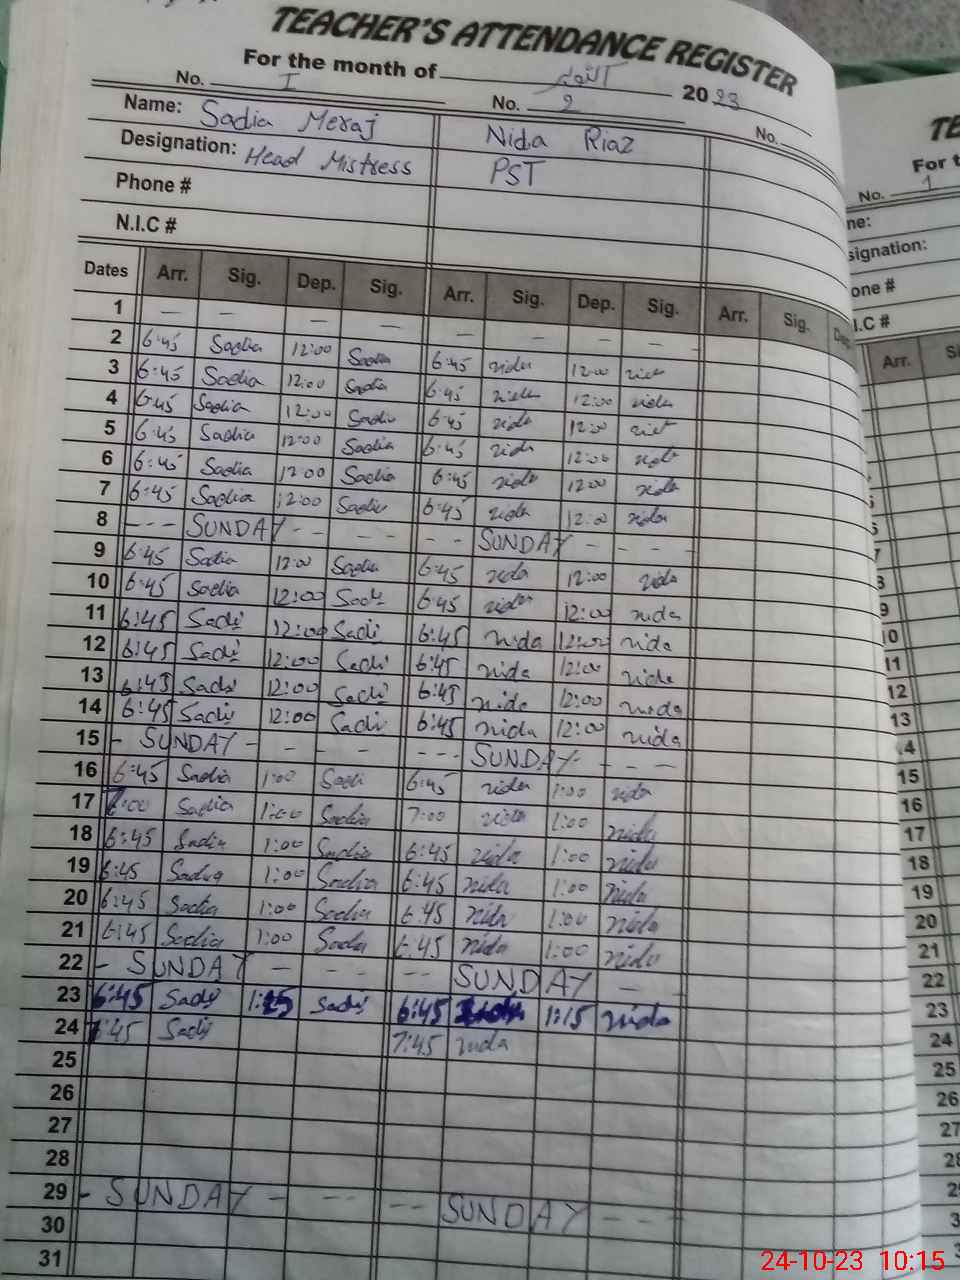 TEACHER'S ATTENDANCE REGISTER
For the month of اکتوبر 2023
No. I No. 2 No.
Name: Sadia Meraj Nida Riaz
Designation: Head Mistress PST
Phone #
N.I.C #
Dates Arr. Sig. Dep. Sig. Arr. Sig. Dep. Sig. Arr. Sig. Dep.
1 — — — — — — — —
2 6:45 Sadia 12:00 Sadia 6:45 nida 12:00 nida
3 6:45 Sadia 12:00 Sadia 6:45 nida 12:00 nida
4 6:45 Sadia 12:00 Sadia 6:45 nida 12:00 nida
5 6:45 Sadia 12:00 Sadia 6:45 nida 12:00 nida
6 6:45 Sadia 12:00 Sadia 6:45 nida 12:00 nida
7 6:45 Sadia 12:00 Sadia 6:45 nida 12:00 nida
8 --- SUNDAY - --- -- SUNDAY - - -
9 6:45 Sadia 12:00 Sadia 6:45 nida 12:00 nida
10 6:45 Sadia 12:00 Sadi 6:45 nida 12:00 nida
11 6:45 Sadi 12:00 Sadi 6:45 nida 12:00 nida
12 6:45 Sadi 12:00 Sadi 6:45 nida 12:00 nida
13 6:45 Sadi 12:00 Sadi 6:45 nida 12:00 nida
14 6:45 Sadi 12:00 Sadi 6:45 nida 12:00 nida
15 - SUNDAY - - - - --- SUNDAY - - - -
16 6:45 Sadia 1:00 Sadi 6:45 nida 1:00 nida
17 7:00 Sadia 1:00 Sadia 7:00 nida 1:00 nida
18 6:45 Sadia 1:00 Sadia 6:45 nida 1:00 nida
19 6:45 Sadia 1:00 Sadia 6:45 nida 1:00 nida
20 6:45 Sadia 1:00 Sadia 6:45 nida 1:00 nida
21 6:45 Sadia 1:00 Sadia 6:45 nida 1:00 nida
22 - SUNDAY - - - - -- SUNDAY - -
23 6:45 Sadi 1:15 Sadi 6:45 nida 1:15 nida
24 7:45 Sadi 7:45 nida
25
26
27
28
29 - SUNDAY - -- -- SUNDAY - - -
30
31
TE
For t
No. 1
ne:
signation:
one #
.I.C #
Arr. S
7
8
9
10
11
12
13
14
15
16
17
18
19
20
21
22
23
24
25
26
27
28
24-10-23 10:15